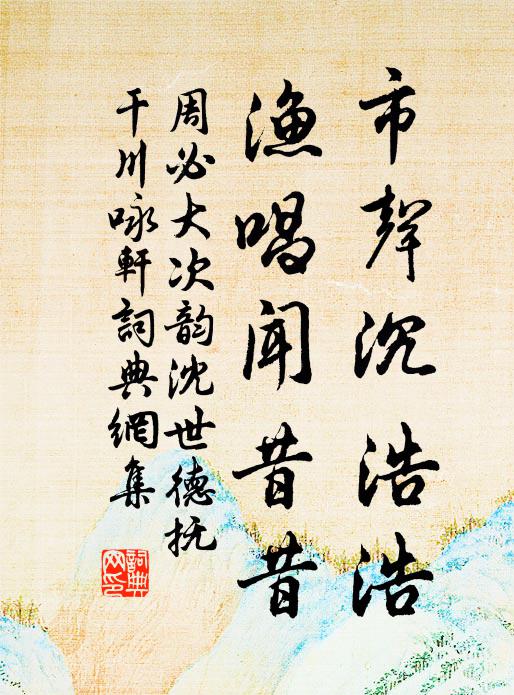 市聲沉浩浩
漁唱聞昔昔
周必大次韵沈世德抚
干川咏軒詞典網集
詞典网印